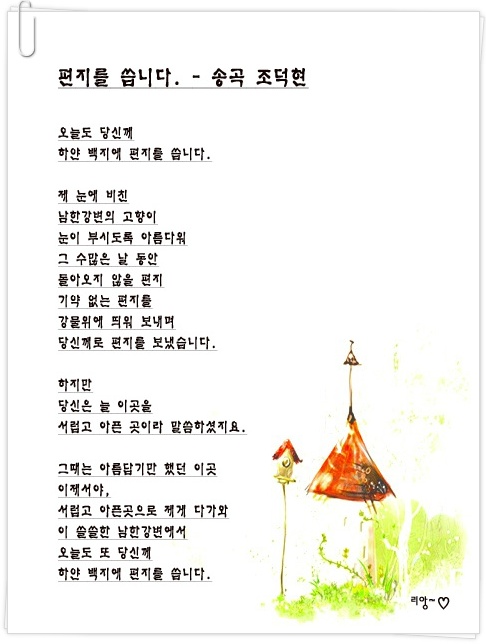 편지를 씁니다. - 송곡 조덕현
오늘도 당신께
하얀 백지에 편지를 씁니다.
제 눈에 비친
남한강변의 고향이
눈이 부시도록 아름다워
그 수많은 날 동안
돌아오지 않을 편지
기약 없는 편지를
강물위에 띄워 보내며
당신께로 편지를 보냈습니다.
하지만
당신은 늘 이곳을
서럽고 아픈 곳이라 말씀하셨지요.
그때는 아름답기만 했던 이곳
이제서야,
서럽고 아픈곳으로 제게 다가와
이 쓸쓸한 남한강변에서
오늘도 또 당신께
하얀 백지에 편지를 씁니다.
리앙~♡